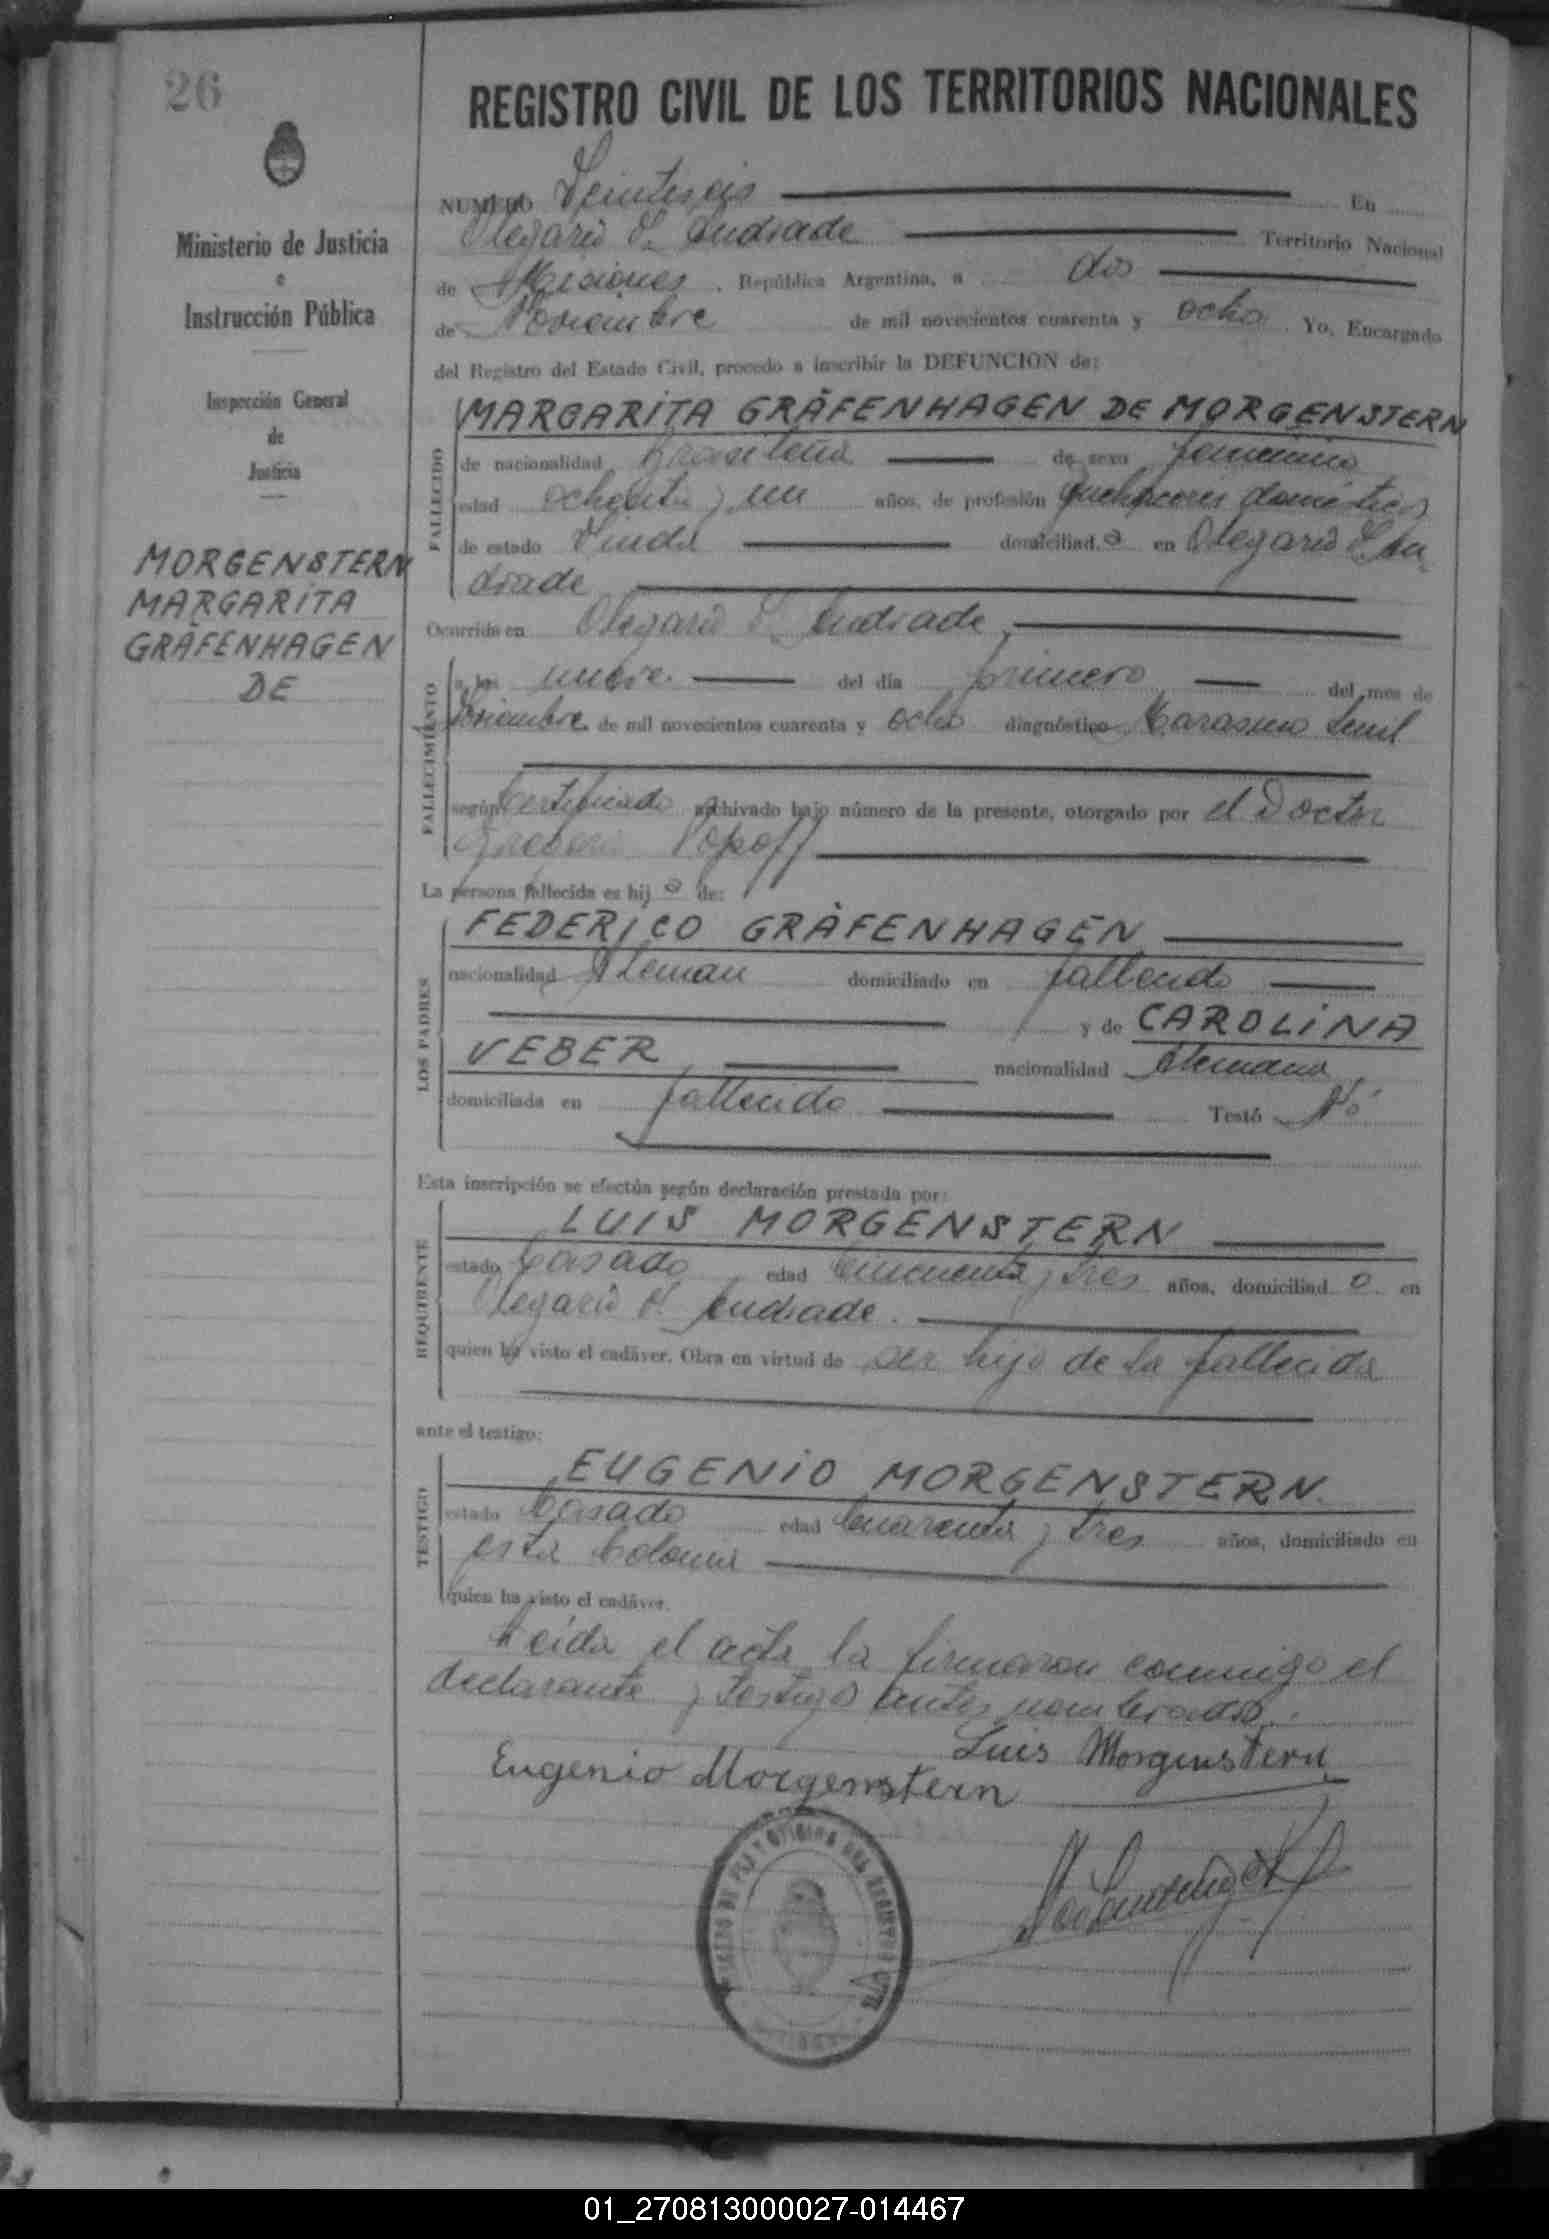 26
Ministerio de Justicia
e
Instrucción Pública
Inspección General
de
Justicia
MORGENSTERN
MARGARITA
GRÄFENHAGEN
DE
REGISTRO CIVIL DE LOS TERRITORIOS NACIONALES
NUMERO Veintiseis En
Olegario V. Andrade Territorio Nacional
de Misiones, República Argentina, a dos
de Noviembre de mil novecientos cuarenta y ocho Yo, Encargado
del Registro del Estado Civil, procedo a inscribir la DEFUNCION de:
FALLECIDO
MARGARITA GRÄFENHAGEN DE MORGENSTERN
de nacionalidad brasileña de sexo femenino
edad ochenta y un años, de profesión quehaceres domésticos
de estado Viuda domiciliad a en Olegario V. An-
drade
Ocurrido en Olegario V. Andrade,
FALLECIMIENTO
a las nueve. del día primero del mes de
Noviembre de mil novecientos cuarenta y ocho diagnóstico Marasmo Senil
según Certificado archivado bajo número de la presente, otorgado por el Doctor
Gregorio Popoff
La persona fallecida es hij a de:
LOS PADRES
FEDERICO GRÄFENHAGEN
nacionalidad Aleman domiciliado en fallecido
y de CAROLINA
VEBER nacionalidad Alemana
domiciliada en fallecido Testó No
Esta inscripción se efectúa según declaración prestada por:
REQUIRENTE
LUIS MORGENSTERN
estado Casado edad Cincuenta y tres años, domiciliad o en
Olegario V. Andrade.
quien ha visto el cadáver. Obra en virtud de ser hijo de la fallecida
ante el testigo:
TESTIGO
EUGENIO MORGENSTERN.
estado Casado edad Cuarenta y tres años, domiciliado en
esta Colonia
quien ha visto el cadáver.
Leída el acta la firmaron conmigo el
declarante y testigo antes nombrados.
Luis Morgenstern
Eugenio Morgenstern
JUZGADO DE PAZ Y OFICINA DEL REGISTRO CIVIL
01_270813000027-014467